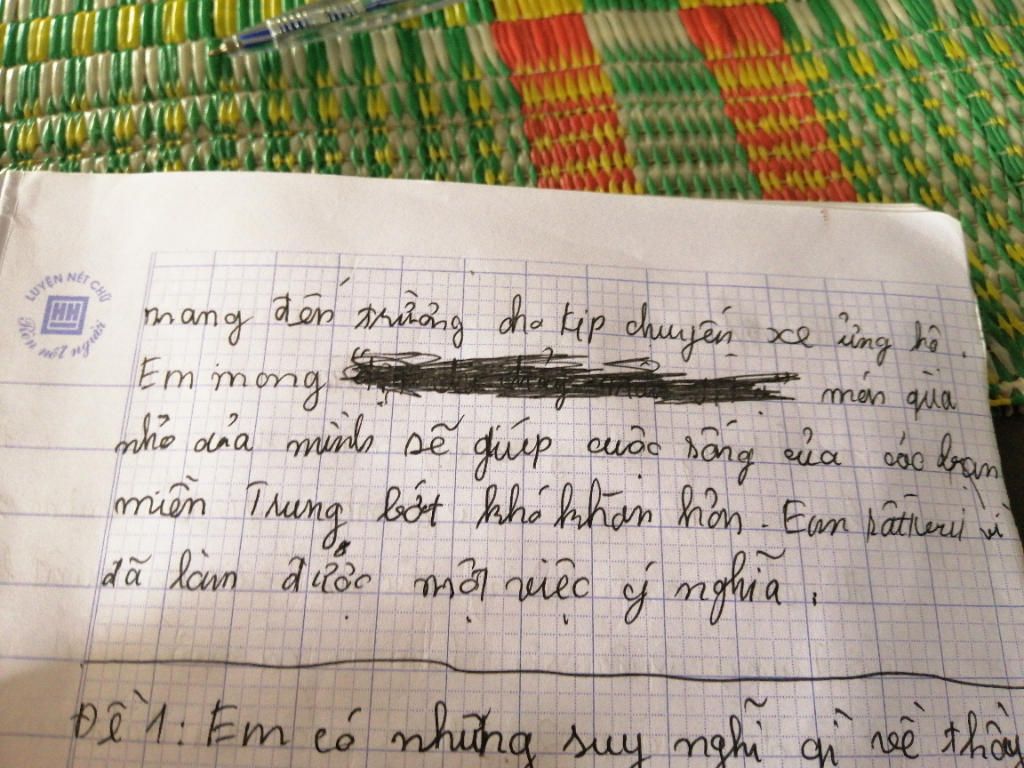 LUYỆN NÉT CHỮ
HH
Rèn nết người
mang đến trường cho kịp chuyến xe ủng hộ.
Em mong món quà
nhỏ của mình sẽ giúp cuộc sống của các bạn
miền Trung bớt khó khăn hơn. Em rất vui vì
đã làm được một việc ý nghĩa.
Đề 1: Em có những suy nghĩ gì về thầy